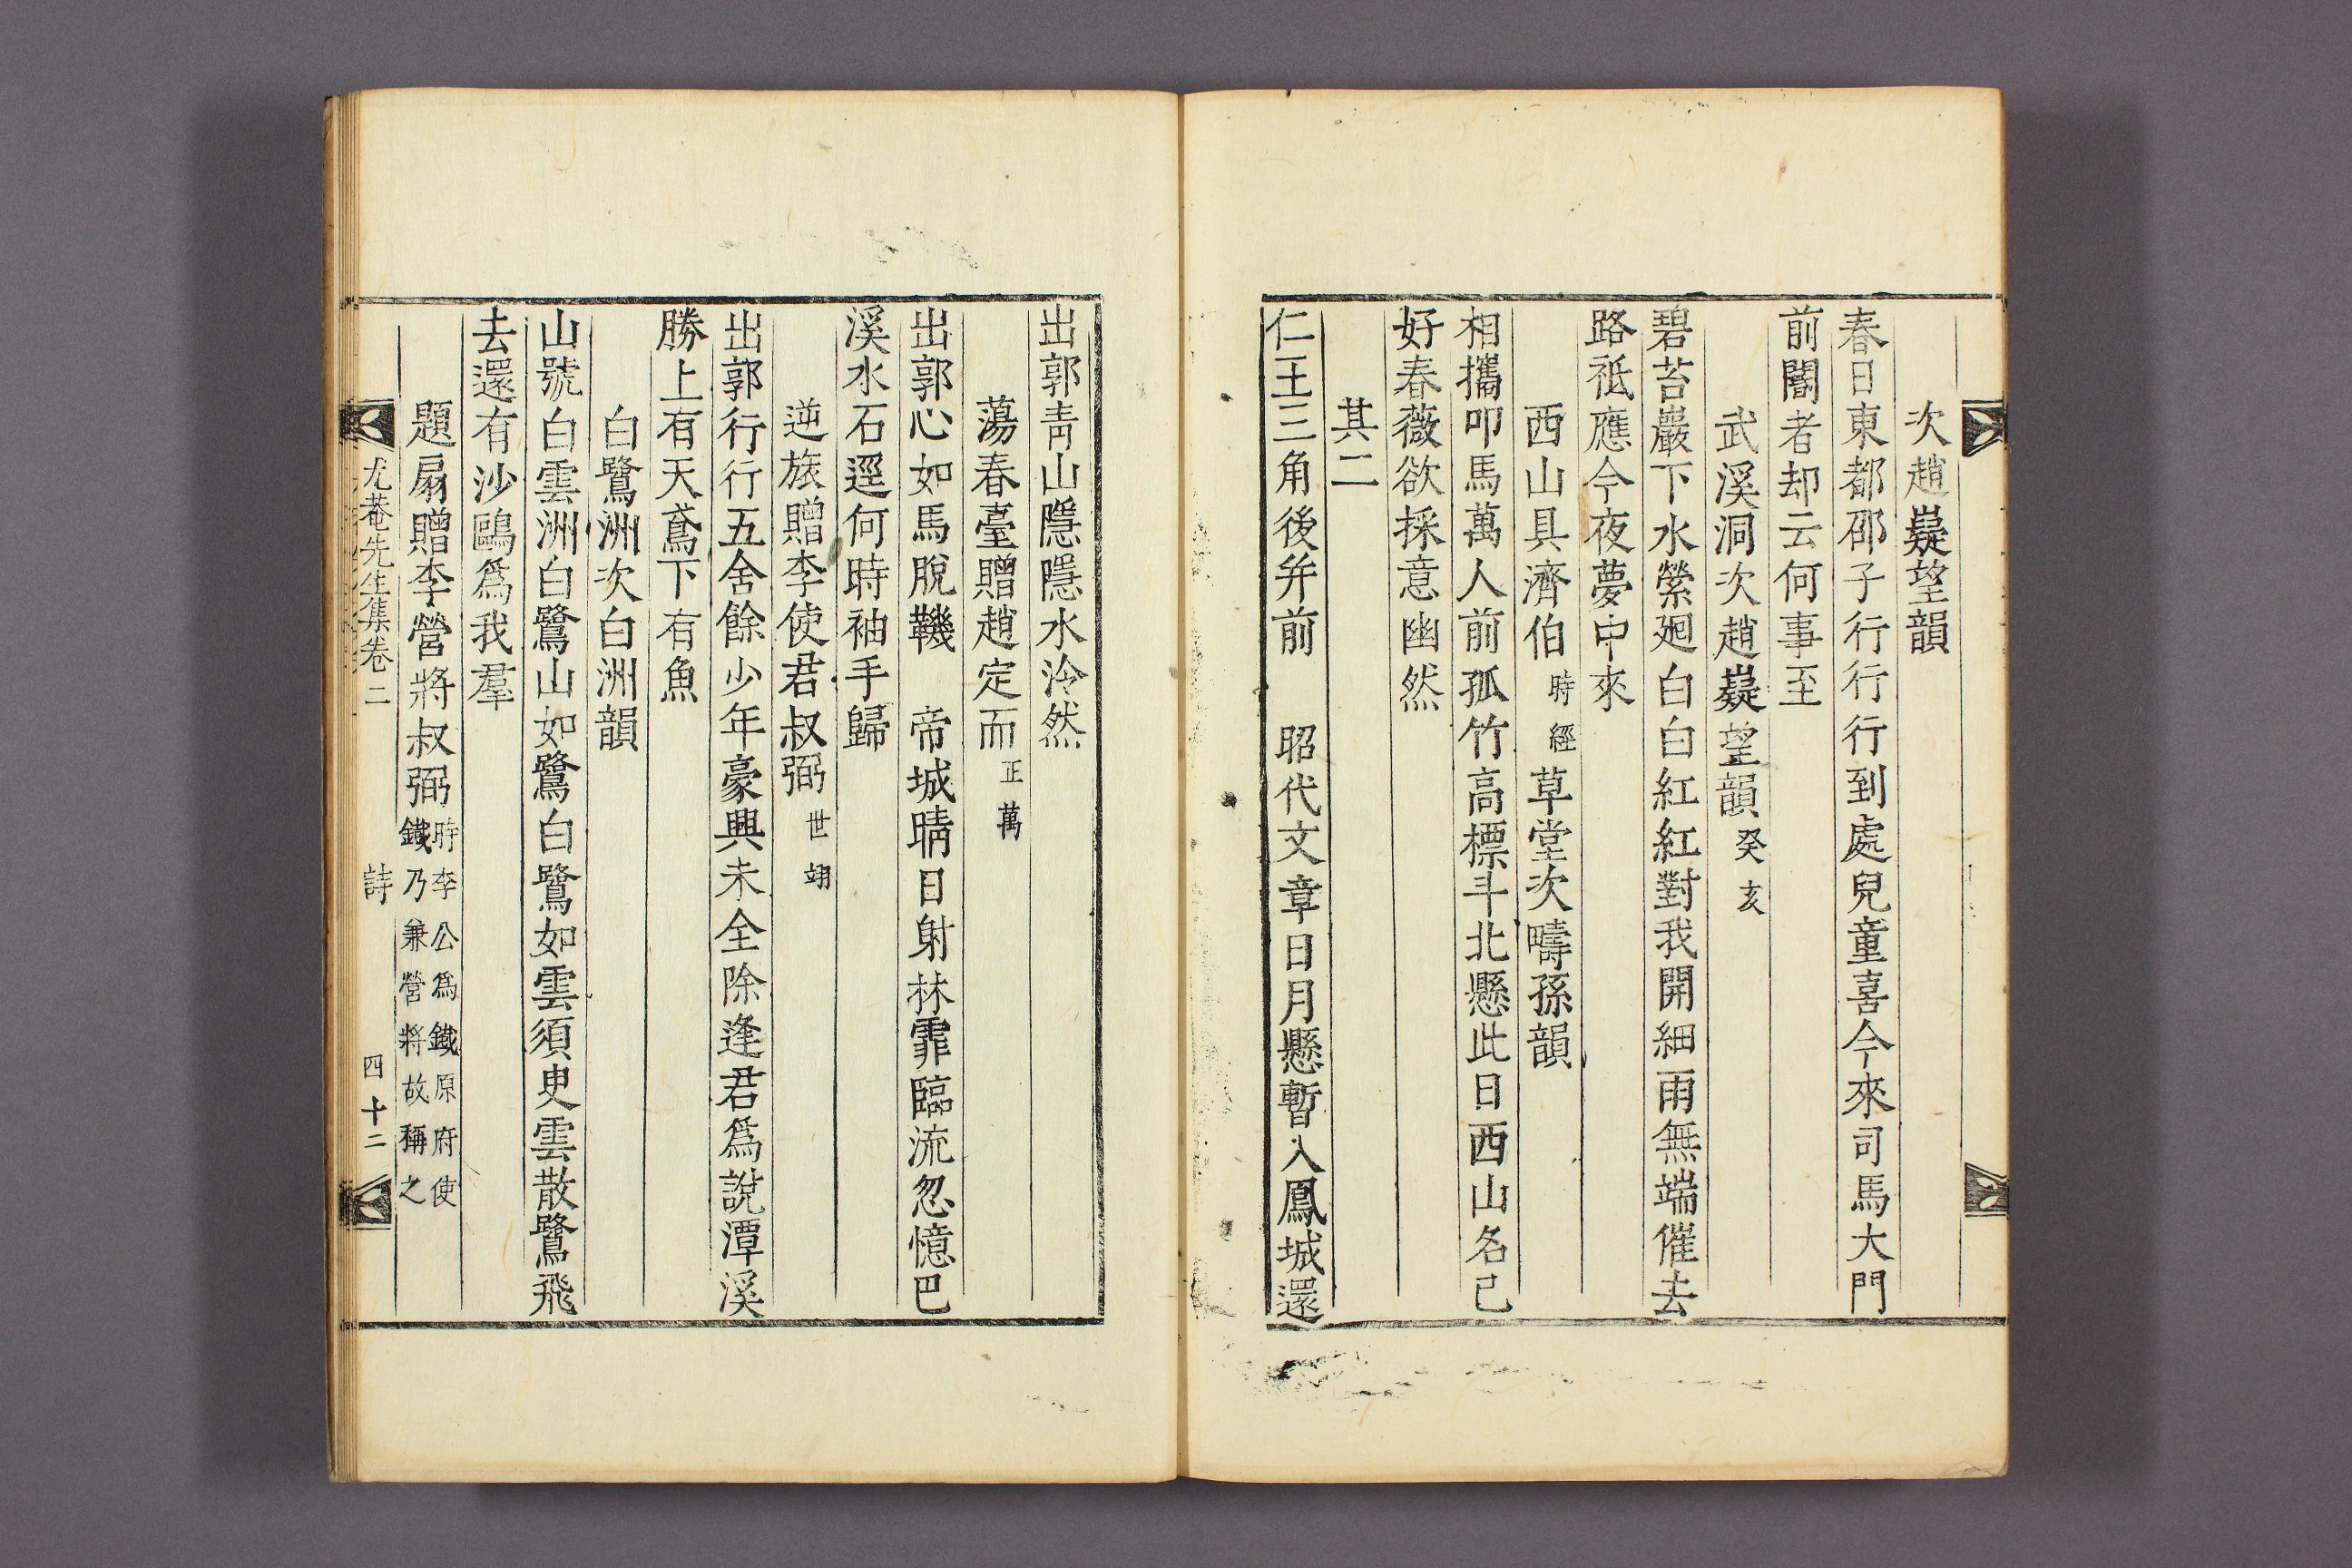 次趙嶷望韻
春日東都邵子行行行到處兒童喜今來司馬大門
前閽者却云何事至
武溪洞次趙嶷望韻癸亥
碧苔巖下水縈廻白白紅紅對我開細雨無端催去
路袛應今夜夢中來
西山具濟伯時經草堂次疇孫韻
相攜叩馬萬人前孤竹高標斗北懸此日西山名已
好春薇欲採意幽然
其二
仁王三角後弁前 昭代文章日月懸暫入鳳城還
出郭靑山隱隱水泠然
蕩春臺贈趙定而正萬
出郭心如馬脫鞿 帝城晴日射林霏臨流忽憶巴
溪水石逕何時袖手歸
逆旅贈李使君叔弼世翊
出郭行行五舍餘少年豪興未全除逢君爲說潭溪
勝上有天鳶下有魚
白鷺洲次白洲韻
山號白雲洲白鷺山如鷺白鷺如雲須臾雲散鷺飛
去還有沙鷗爲我羣
題扇贈李營將叔弼時李公爲鐵原府使
鐵乃兼營將故稱之
尤菴先生集卷二 詩 四十二